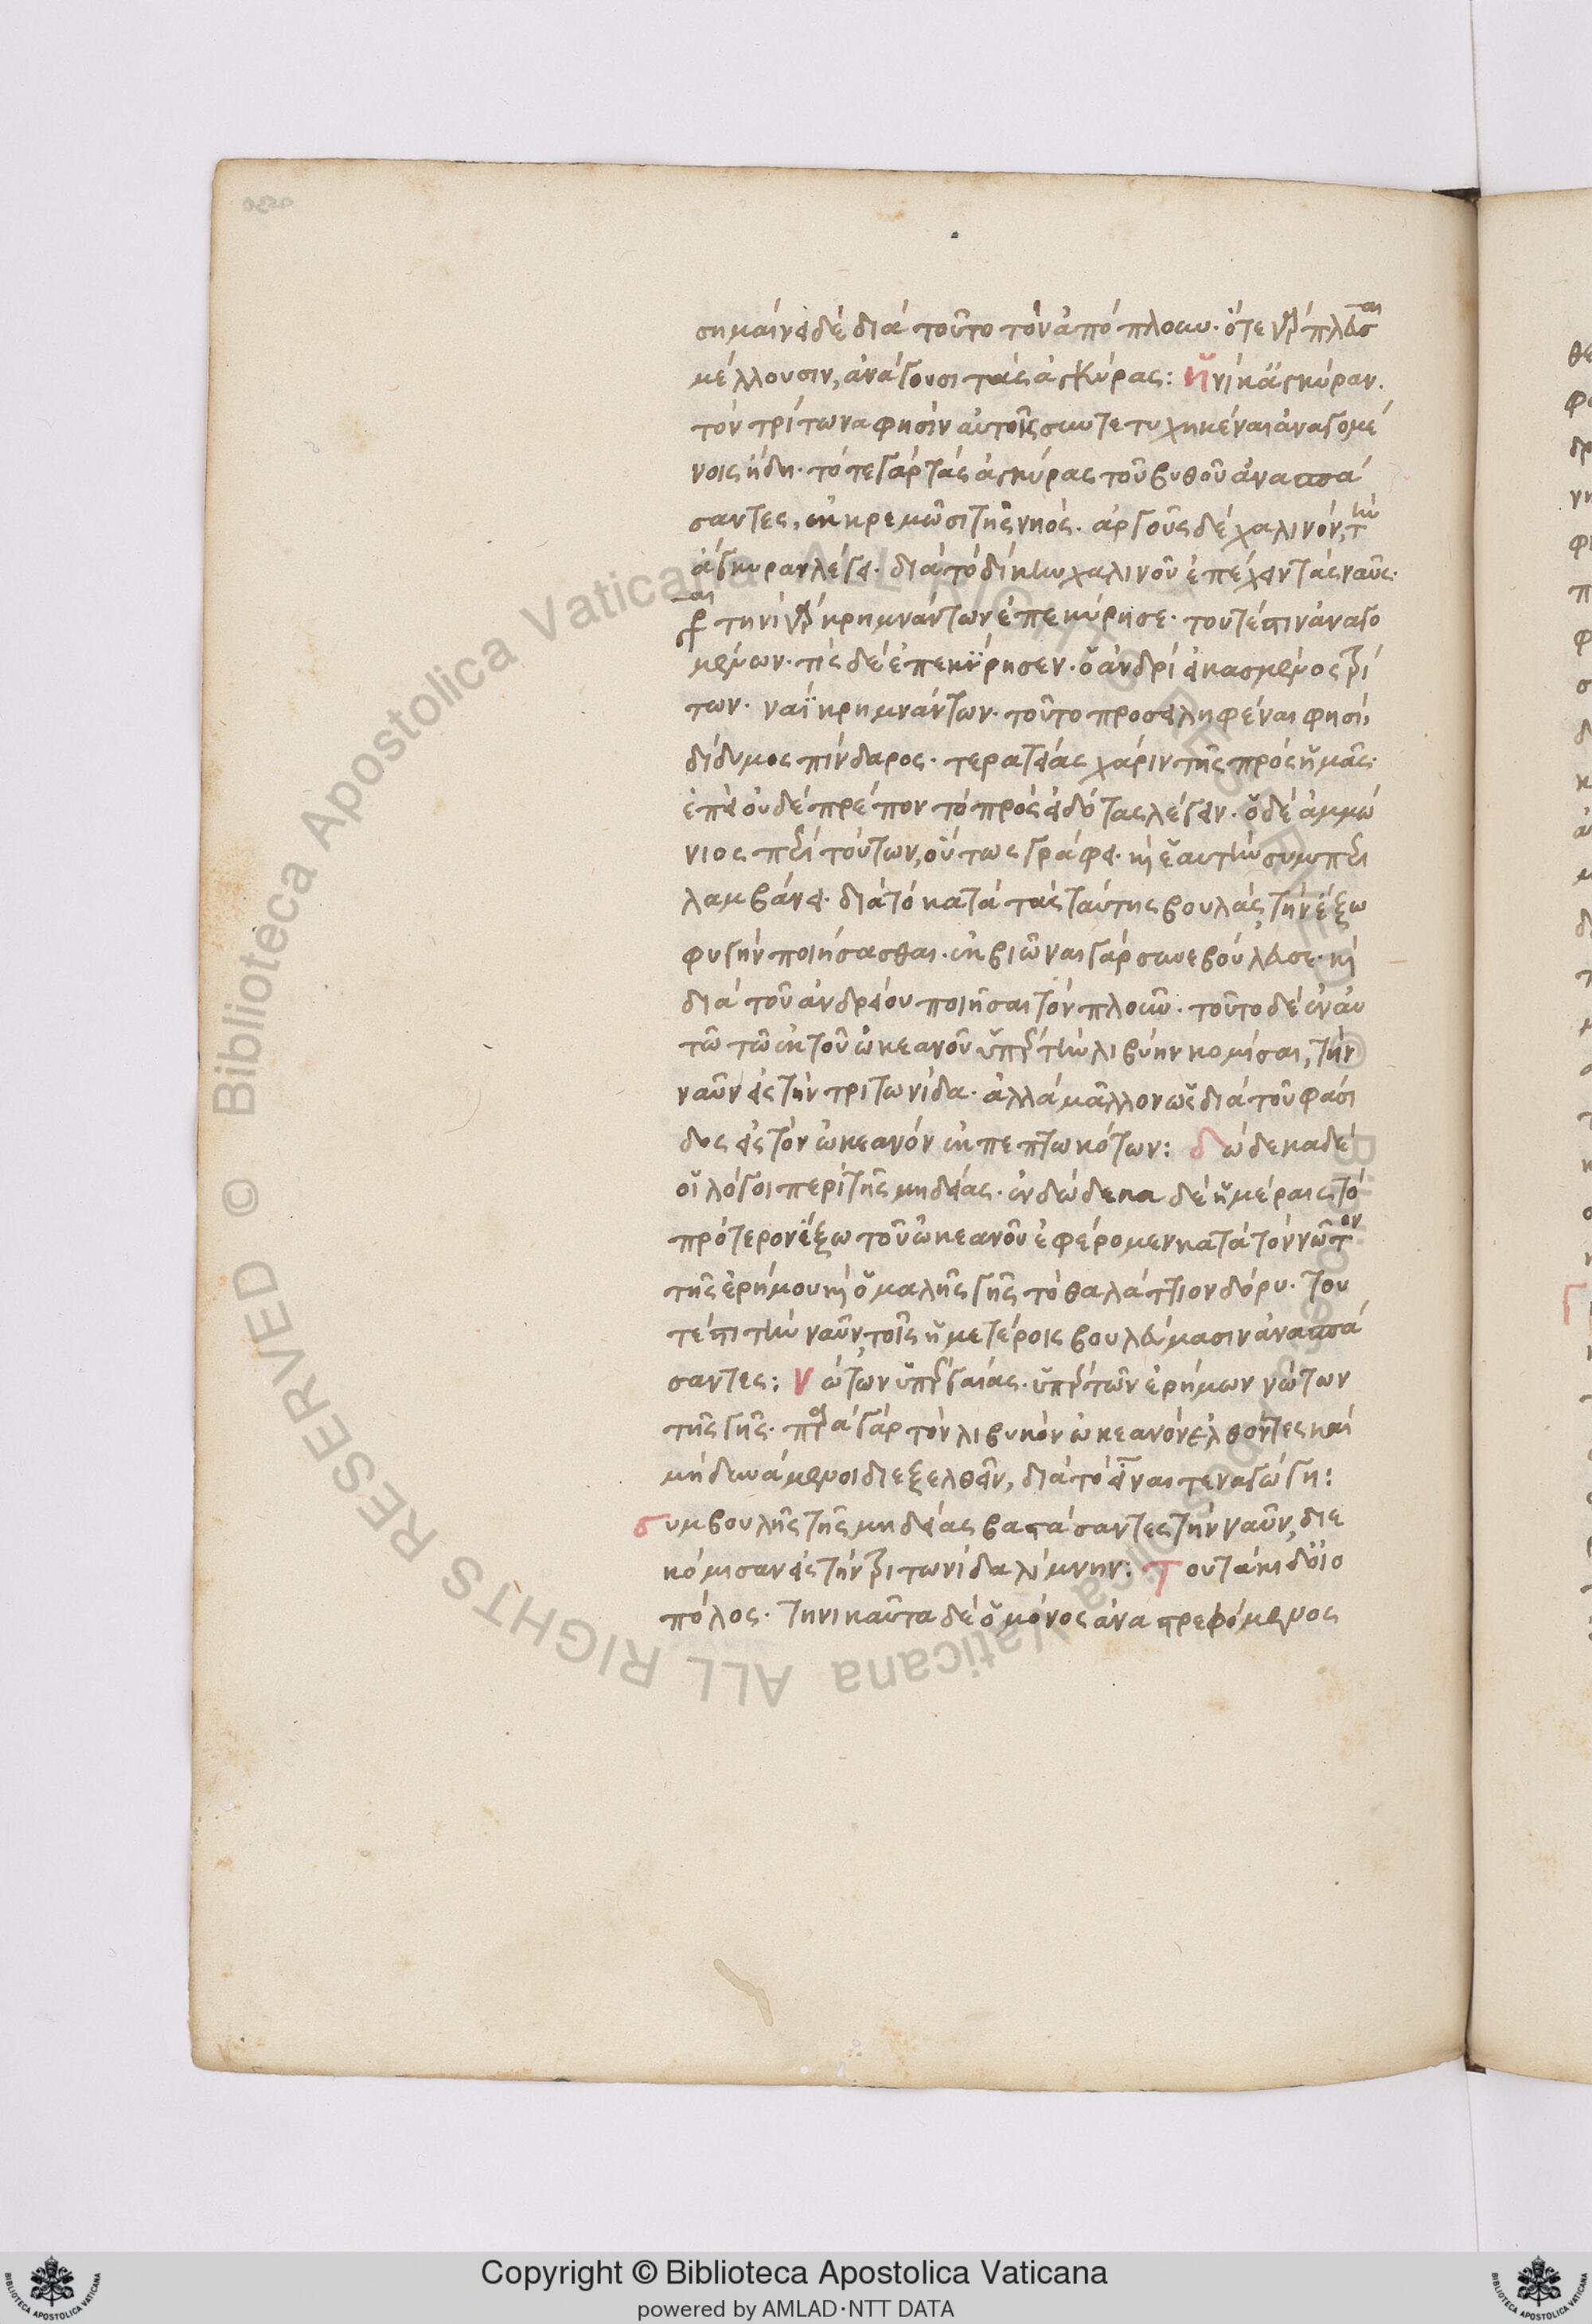 σημαίνει δὲ διὰ τοῦτο τὸν ἀπόπλουν· ὅτε γὰρ πλεῦσαι
μέλλουσιν, ἀνάγουσι τὰς ἀγκύρας: ἡνίκ' ἄγκυραν·
τὸν τρίτωνα φησὶν αὐτοῖς συντετυχηκέναι ἀναγομέ
νοις ἤδη· τότε γὰρ τὰς ἀγκύρας τοῦ βυθοῦ ἀνασπά
σαντες, ἐκκρεμῶσι τῆς νηός. ἀργοῦς δὲ χαλινόν, τὴν
ἄγκυραν λέγει· διὰ τὸ δίκην χαλινοῦ ἐπέχειν τὰς ναῦς·
τηνι γὰρ κρημνάντων ἐπεκύρησε· τουτέστιν ἀναγο
μένων· τίς δὲ ἐπεκύρησεν· ὁ ἀνδρὶ εἰκασμένος τρί
των· ναῒ κρημνάντων· τοῦτο προσειληφέναι φησὶ
δίδυμος πίνδαρος· τερατείας χάριν τῆς πρὸς ἡμᾶς·
ἐπεὶ οὐδὲ πρέπον τὸ πρὸς εἰδότας λέγειν· ὁ δὲ ἀμμώ
νιος περὶ τούτων, οὕτως γράφει· καὶ ἑαυτὴν συμπερι
λαμβάνει· διὰ τὸ κατὰ τὰς ταύτης βουλὰς τὴν ἔξω
φυγὴν ποιήσασθαι· ἐκβιῶναι γὰρ συνεβούλευσε· καὶ
διὰ τοῦ ἀνδρείου ποιῆσαι τὸν πλοῦν· τοῦτο δὲ ἐν αὐ
τῶ τῶ ἐκ τοῦ ὠκεανοῦ ὑπὲρ τὴν λιβύην κομίσαι, τὴν
ναῦν εἰς τὴν τριτωνίδα· ἀλλὰ μᾶλλον ὡς διὰ τοῦ φάσι
δος εἰς τὸν ὠκεανὸν ἐκπεπτωκότων: δώδεκα δὲ
οἱ λόγοι περὶ τῆς μηδείας· ἐν δώδεκα δὲ ἡμέραις τὸ
πρότερον ἔξω τοῦ ὠκεανοῦ ἐφέρομεν κατὰ τὸν νῶτον
τῆς ἐρήμου καὶ ὁμαλῆς γῆς τὸ θαλάττιον δόρυ· του
τέστι τὴν ναῦν, τοῖς ἡμετέροις βουλεύμασιν ἀνασπά
σαντες: νώτων ὑπὲρ γαίας· ὑπὲρ τῶν ἐρήμων νώτων
τῆς γῆς· παρὰ γὰρ τὸν λιβυκὸν ὠκεανὸν ἐλθόντες καὶ
μὴ δυνάμενοι διεξελθεῖν, διὰ τὸ εἶναι τεναγώγη:
συμβουλῆς τῆς μηδείας βαστάσαντες τὴν ναῦν, διε
κόμισαν εἰς τὴν τριτωνίδα λίμνην: τουτάκι δ' οἰο
πόλος· τηνικαῦτα δὲ ὁ μόνος ἀναστρεφόμενος